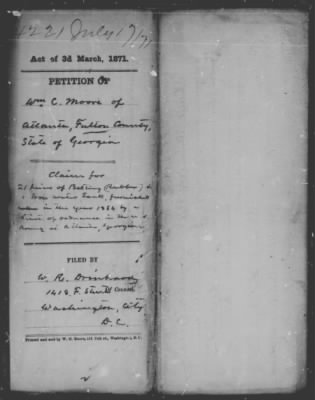 1221 July 17/71
Act of 3d March, 1871.
PETITION OF
Wm C. Moore of
Atlanta, Fulton County,
State of Georgia
Claim for
21 pieces of Belting (Rubber) &
1 Iron water Tank, furnished
in the year 1864 by
of ordnance in the U. S.
Army at Atlanta, Georgia
FILED BY
W. R. Drinkard
1413 F. Street of Counsel
Washington, City
D. C.
Printed and sold by W. H. Moore, 11th, Washington, D. C.